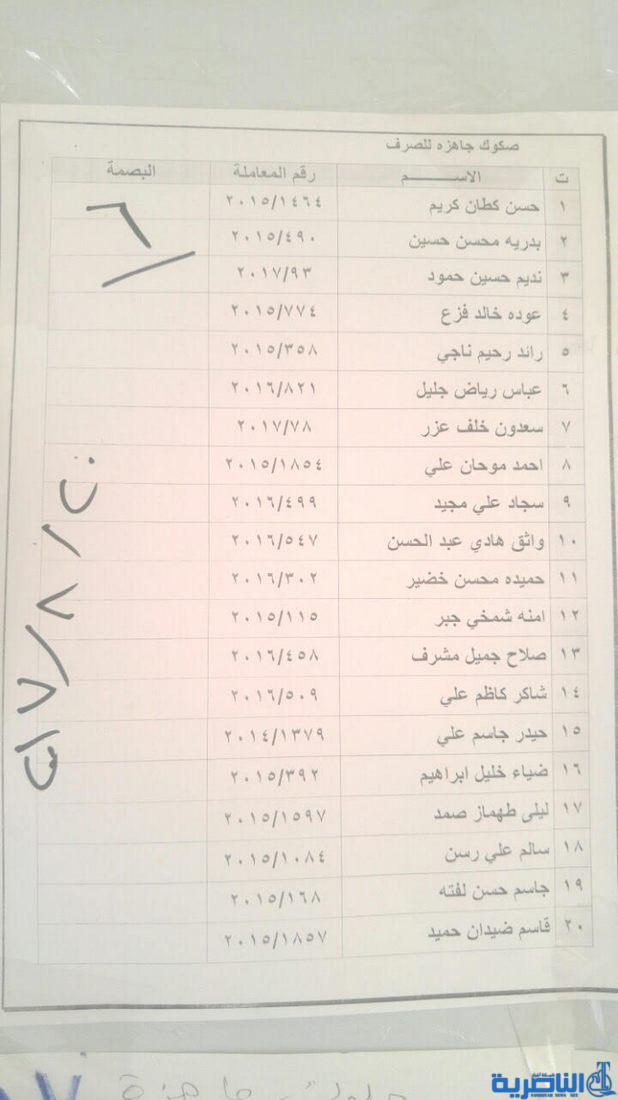 صكوك جاهزه للصرف
ت الاســـــــــم رقم المعاملة البصمة
١ حسن كطان كريم ٢٠١٥/١٤٦٤
٢ بدريه محسن حسين ٢٠١٥/٤٩٠
٣ نديم حسين حمود ٢٠١٧/٩٣
٤ عوده خالد فزع ٢٠١٥/٧٧٤
٥ رائد رحيم ناجي ٢٠١٥/٣٥٨
٦ عباس رياض جليل ٢٠١٦/٨٢١
٧ سعدون خلف عزر ٢٠١٧/٧٨
٨ احمد موحان علي ٢٠١٥/١٨٥٤
٩ سجاد علي مجيد ٢٠١٦/٤٩٩
١٠ واثق هادي عبد الحسن ٢٠١٦/٥٤٧
١١ حميده محسن خضير ٢٠١٦/٣٠٢
١٢ امنه شمخي جبر ٢٠١٥/١١٥
١٣ صلاح جميل مشرف ٢٠١٦/٤٥٨
١٤ شاكر كاظم علي ٢٠١٦/٥٠٩
١٥ حيدر جاسم علي ٢٠١٤/١٣٧٩
١٦ ضياء خليل ابراهيم ٢٠١٥/٣٩٢
١٧ ليلى طهماز صمد ٢٠١٥/١٥٩٧
١٨ سالم علي رسن ٢٠١٥/١٠٨٤
١٩ جاسم حسن لفته ٢٠١٥/١٦٨
٢٠ قاسم ضيدان حميد ٢٠١٥/١٨٥٧
٦
جاهزة
شبكة اخبار
الناصرية
NASIRIYAH NEWS NET